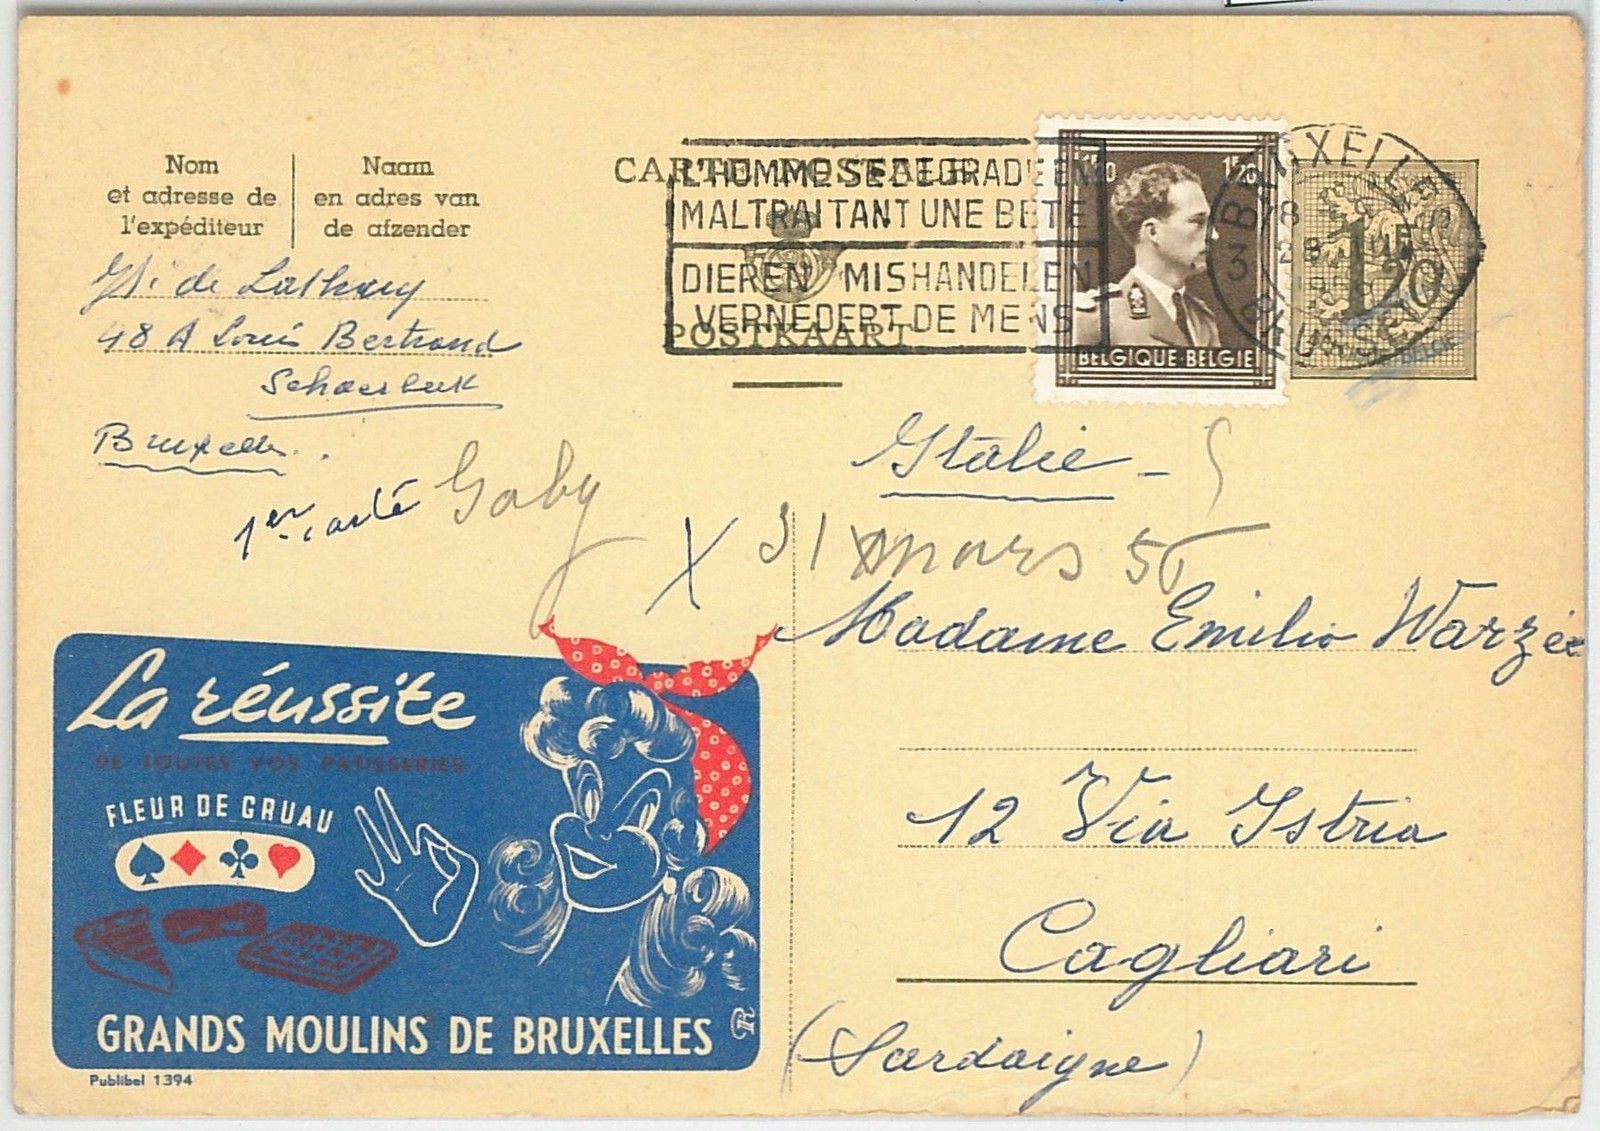 Nom
et adresse de
l'expéditeur
Naam
en adres van
de afzender
CARTE POSTALE
POSTKAART
L'HOMME SE DEGRADE EN
MALTRAITANT UNE BETE
DIEREN MISHANDELEN
VERNEDERT DE MENS
1F50 1F50
BELGIQUE-BELGIE
BRUXELLES
3
18
BRUSSEL
1F20
BELGIE
de
48 A Louis Bertrand
Schaerbeek
Bruxelles.
1er carte Gaby
Italie -
X 31 mars 55
Madame Emilio Warzée
12 Via Istria
Cagliari
(Sardaigne)
La réussite
DE TOUTES VOS PATISSERIES
FLEUR DE GRUAU
GRANDS MOULINS DE BRUXELLES
Publibel 1394